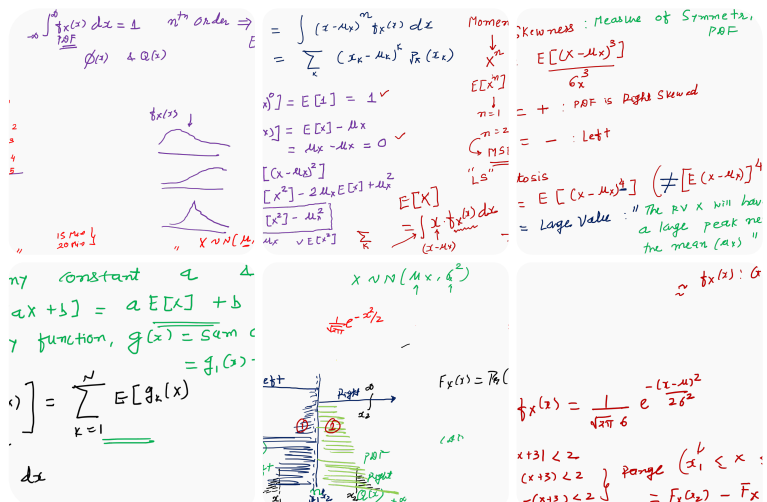 -∞∫^∞ fx(x) dx = 1
PDF
nᵗʰ order ⇒
E
Φ(x) & Q(x)
fx(x)
2
3
4
5
15 Mar
20 Mar
" X ~ N(μ,
= ∫ (x-μx)^n fx(x) dx
= Σ_k (xk-μx)^k Pk(xk)
x)^0] = E[1] = 1 ✓
x)] = E[x] - μx
= μx - μx = 0 ✓
[(x-μx)^2]
[x^2] - 2μx E[x] + μx^2
[x^2] - μx^2
μx ∨ E[x^2]
Σ_k
E[X]
= ∫ x · fx(x) dx
(x-μx)
Momen
X^n
E[X^n]
n=1
n=2
MS
"LS"
Skewness : Measure of Symmetr,
PDF
E[(X-μx)^3]
σx^3
= + : PDF is Right Skewed
= - : Left
tosis
= E[(X-μx)^4] (≠[E(X-μx)]^4
= Large Value : "The RV X will hav
a large peak ne
the mean (μx)"
ny constant a &
ax+b] = a E[X] + b
y function, g(x) = sum o
= g₁(x)-
x)] = Σ_{k=1}^{N} E[gk(x)
dx
X ~ N(μx, σ^2)
1/√2π e^{-x²/2}
Fx(x) = Pr(
eft
Right
∞
x₂
①
②
PDF
Right
Q(x)
≈ fx(x) : G
fx(x) = 1/√2π σ e^{-(x-μ)²/2σ²}
x+3| < 2
(x+3) < 2
-(x+3) < 2
Range (x₁ < x
= Fx(x₂) - Fx